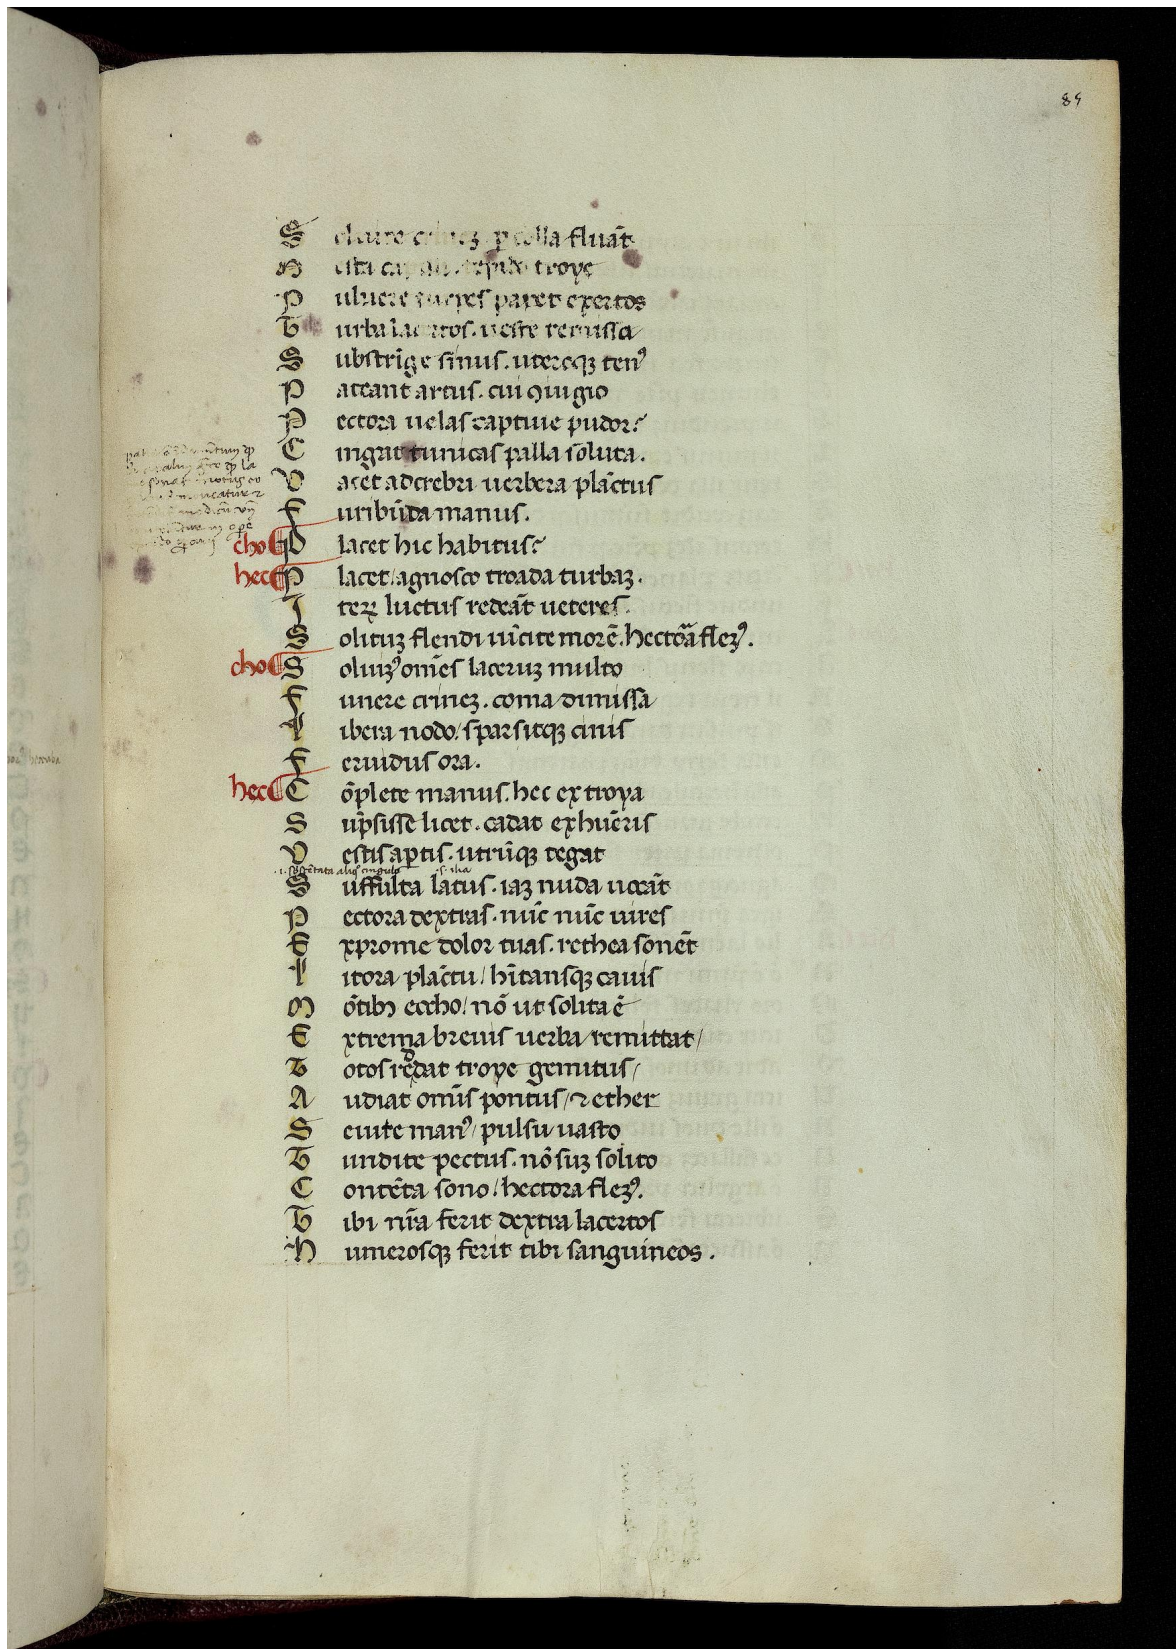 85
Soluite crinez p colla fluāt
Mesta capilli. tepido troye
Puluere turpes paret exertos
Turba lacertos. ueste remissa
Substrīge sinus. uteroqȝ tenꝰ
Pateant artus. cui ꝯiugio
Pectora uelas captiue pudor?
Cingat tunicas palla soluta.
Vacet ad crebri uerbera plāctus
Furibūda manus.
cho Placet hic habitus?
hec Placet/ agnosco troada turbaȝ.
Iteꝝ luctus redeāt ueteres.
Solituȝ flendi uīcite morē. hectora fleȝꝰ.
cho Soluiȝꝰ omēs laceruȝ multo
Funere crineȝ. coma dimissa
Libera nodo/ sparsitqȝ cinis
Feruidus ora.
hec Cōplete manus. hec ex troya
Sūpsisse licet. cadat ex hūeris
Vestis aptis. utrūqȝ tegat
cingulo .s. ilia
Suffulta latus. iaȝ nuda uocāt
Pectora dextras. nūc nūc uires
Exprome dolor tuas. rethea sonēt
Litora plāctu/ hītansqȝ cauis
Mōtibꝫ eccho/ nō ut solita ē
Extrema breuis uerba remittat/
Totos reddat troye gemitus/
Audiat omīs pontus/ ⁊ ether
Seuite manꝰ/ pulsu uasto
Tundite pectus. nō suȝ solito
Contēta sono/ hectora fleȝꝰ.
Tibi nr̄a ferit dextra lacertos
Humerosqȝ ferit tibi sanguineos.